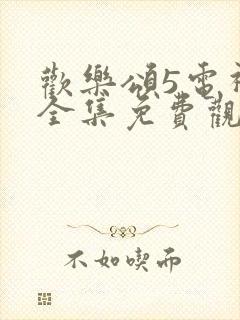 歡樂頌5電視
全集免費觀
不如喫而